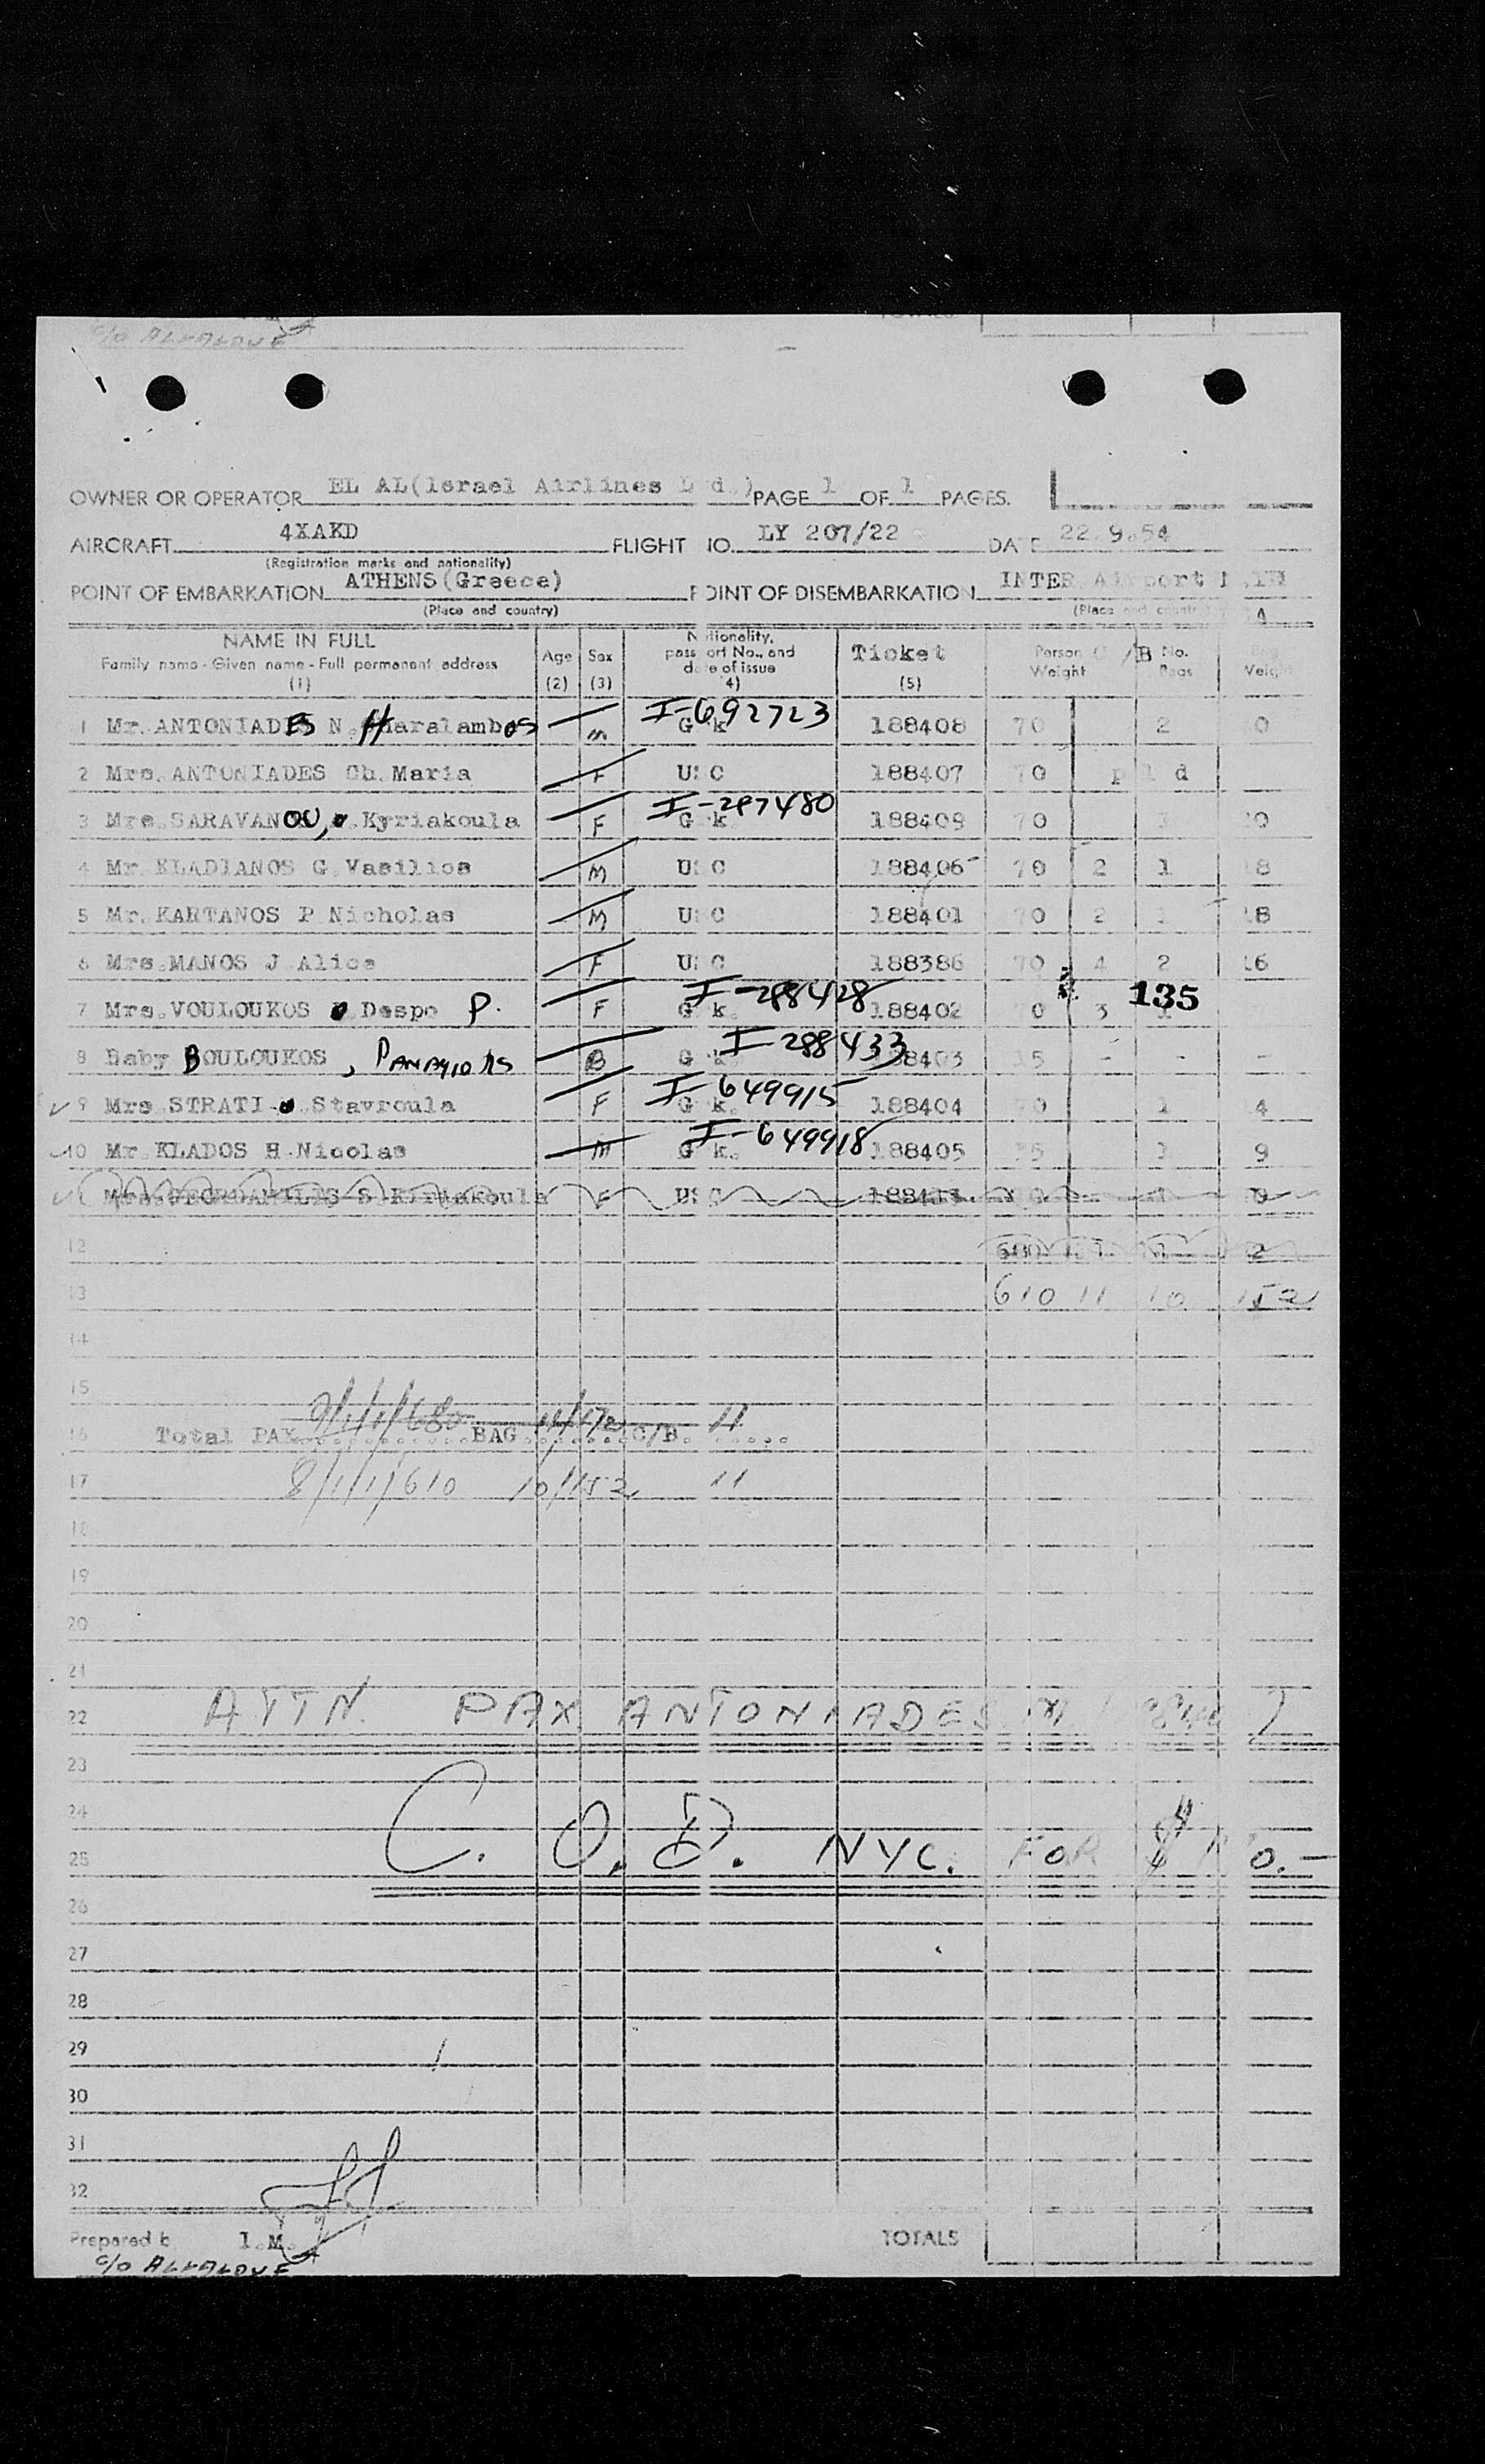 c/o ALKALOVE
OWNER OR OPERATOR EL AL(Israel Airlines L d.) PAGE 1 OF 1 PAGES.
AIRCRAFT 4XAKD FLIGHT NO. LY 207/22 DATE 22.9.54
(Registration marks and nationality)
POINT OF EMBARKATION ATHENS(Greece) POINT OF DISEMBARKATION INTER Airport
(Place and country) (Place and country)
NAME IN FULL
Family name - Given name - Full permanent address
(1)
Age
(2)
Sex
(3)
Nationality,
passport No., and
date of issue
(4)
Ticket
(5)
Person
Weight
/B
No.
Bags
Weigh
1 Mr. ANTONIADES N. Haralambos M G k I-692723 188408 70 2 0
2 Mrs. ANTONIADES Ch. Maria F US C 188407 70 p d
3 Mrs. SARAVANOU, Kyriakoula F G k. I-287480 188409 70 1 0
4 Mr. KLADIANOS G. Vasilios M U C 188406 70 2 1 8
5 Mr. KARTANOS P Nicholas M U C 188401 70 2 1 18
6 Mrs. MANOS J Alice F U C 188386 70 4 2 16
7 Mrs. VOULOUKOS Despo P. F G k. I-288428 188402 70 3 135
8 Baby BOULOUKOS, PANAGIOTIS B G k I-288433 8403 15 - - -
9 Mrs STRATI . Stavroula F G k. I-649915 188404 70 1 4
10 Mr. KLADOS H Nicolas M G k. I-649918 188405 35 1 9
F US C
12
13 610 11 10 152
14
15
16 Total PAX 9/1/1/680 BAG C/B. 11
17 8/1/1/610 10/152 11
18
19
20
21
22 ATTN. PAX ANTONIADES
23
24
25 C. O. D. NYC. FOR $
26
27
28
29
30
31
32
Prepared b I.M. TOTALS
c/o ALKALOVE